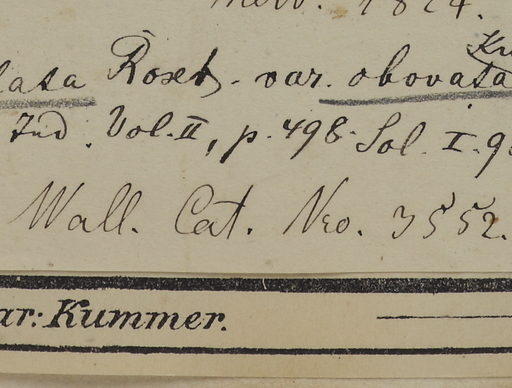 1824.
lata Roxb. var. obovata
Ind. Vol. II, p. 498. Sol. I. 9
Wall. Cat. Nro. 3552.
ar: Kummer.